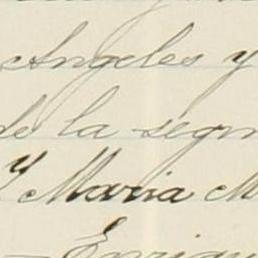 Angeles y
de la segun
y Maria M
Enriqu